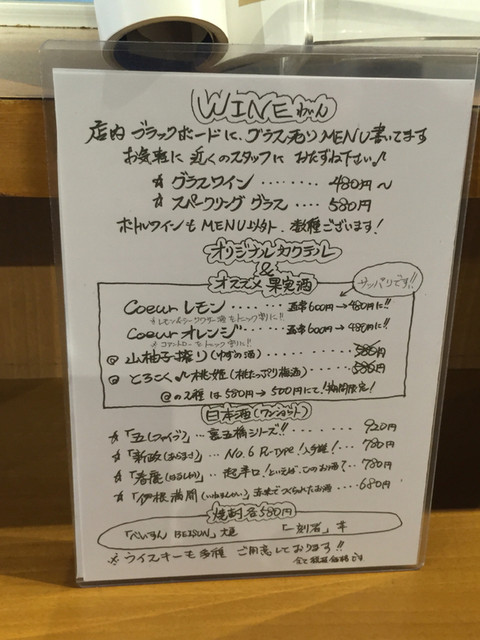 WINE わいん
店内 ブラックボードに、グラス売りMENU書いてます
お気軽に 近くのスタッフに おたずね下さい♪
☆ グラスワイン ········ 480円〜
☆ スパークリング グラス ···· 580円
ボトルワインもMENU以外、数種ございます!
オリジナルカクテル
&
オススメ果実酒
サッパリです!!
Coeur レモン ······ 通常600円→480円に!!
Coeur オレンジ ····· 通常600円→480円に!!
◎ 山柚子搾り(ゆずの酒) ········ 580円
◎ とろこく♪桃姫(桃たっぷり梅酒) ······ 580円
◎の2種は580円→500円にて!期間限定!
日本酒(ワンショット)
☆「五(ファイブ)」··· 裏五橋シリーズ!! ··· 920円
☆「新政(あらまさ)」··· NO.6 R-TYPE!入手難!·· 780円
☆ 超辛口!といえば、このお酒?·· 780円
☆「伊根満開(いねまんかい)」赤米でつくられたお酒···· 680円
焼酎 各580円
「べいすん BEISUN」 「一刻者」芋
※ウイスキーも多種 ご用意しております!!
全て税抜価格です